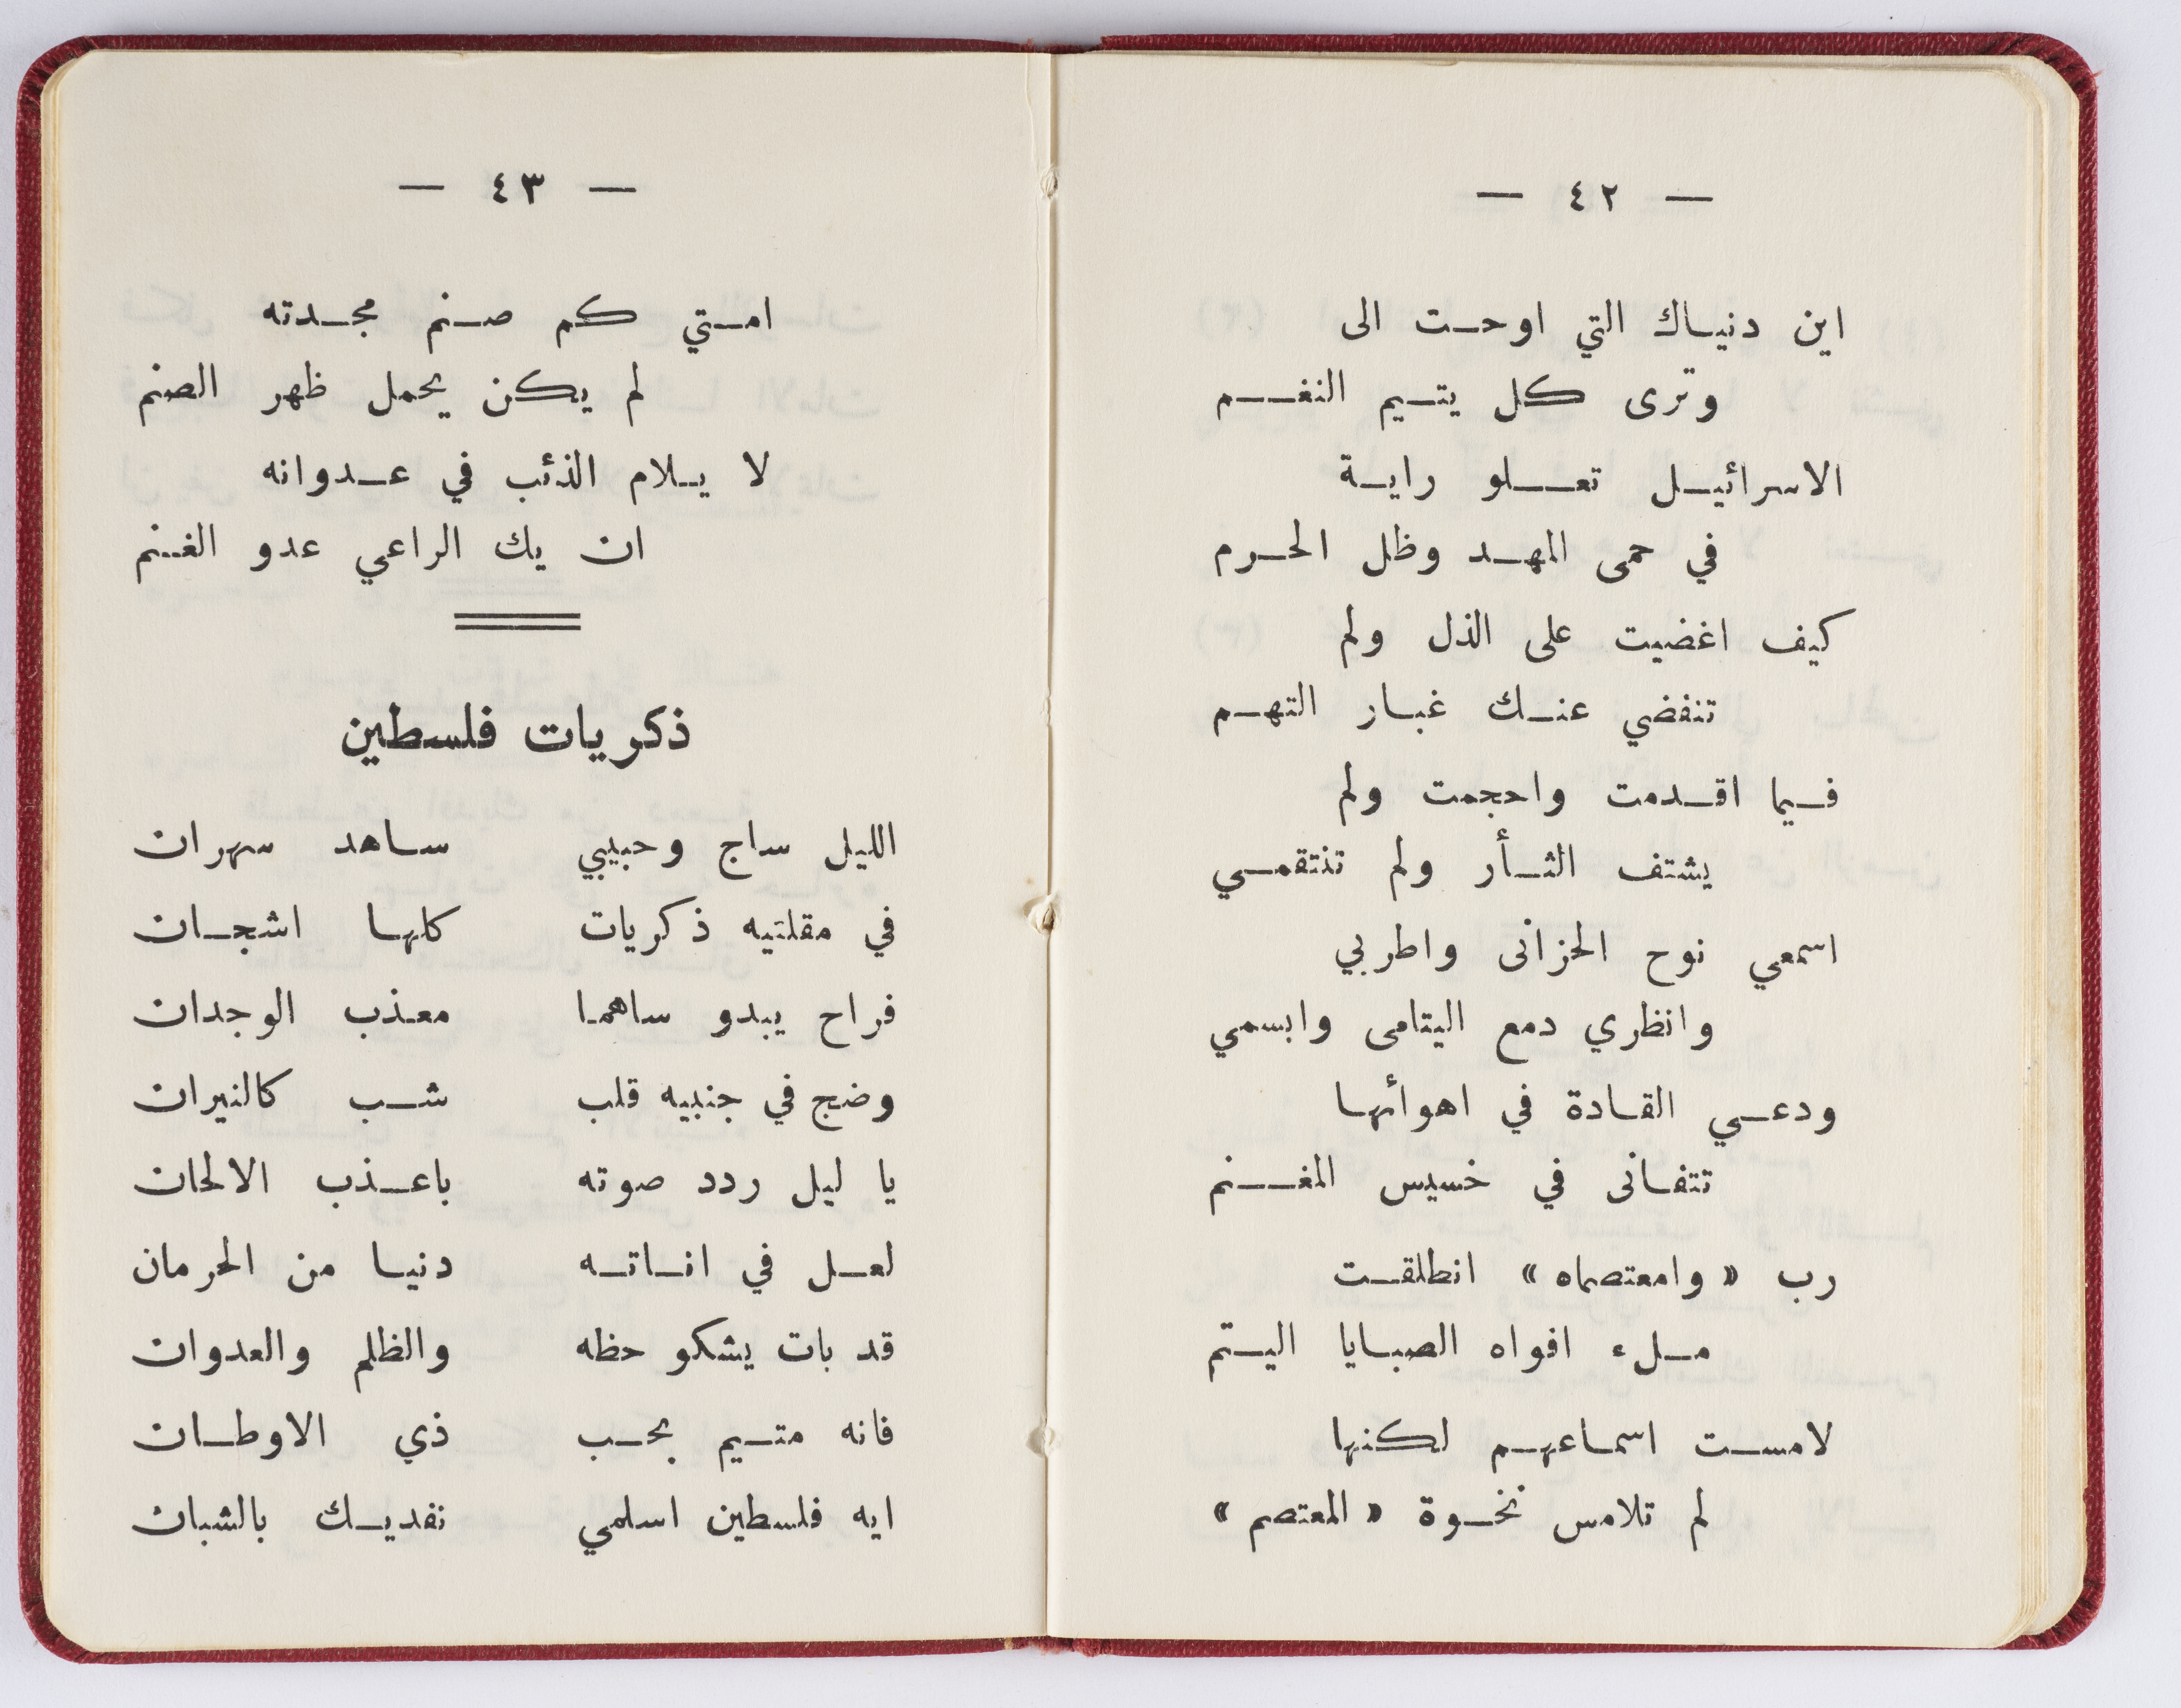 — ٤٢ —
اين دنياك التي اوحت الى
وترى كل يتيم النغم
الاسرائيل تعلو راية
في حمى المهد وظل الحرم
كيف اغضيت على الذل ولم
تنفضي عنك غبار التهم
فيما اقدمت واحجمت ولم
يشتف الثأر ولم تنتقمي
اسمعي نوح الحزانى واطربي
وانظري دمع اليتامى وابسمي
ودعي القادة في اهوائها
تتفانى في خسيس المغنم
رب « وامعتصماه » انطلقت
ملء افواه الصبايا اليتم
لامست اسماعهم لكنها
لم تلامس نخوة « المعتصم »
— ٤٣ —
امتي كم صنم مجدته
لم يكن يحمل ظهر الصنم
لا يلام الذئب في عدوانه
ان يك الراعي عدو الغنم
ذكريات فلسطين
الليل ساج وحبيبي ساهد سهران
في مقلتيه ذكريات كلها اشجان
فراح يبدو ساهما معذب الوجدان
وضج في جنبيه قلب شب كالنيران
يا ليل ردد صوته باعذب الالحان
لعل في اناته دنيا من الحرمان
قد بات يشكو حظه والظلم والعدوان
فانه متيم بحب ذي الاوطان
ايه فلسطين اسلمي نفديك بالشبان